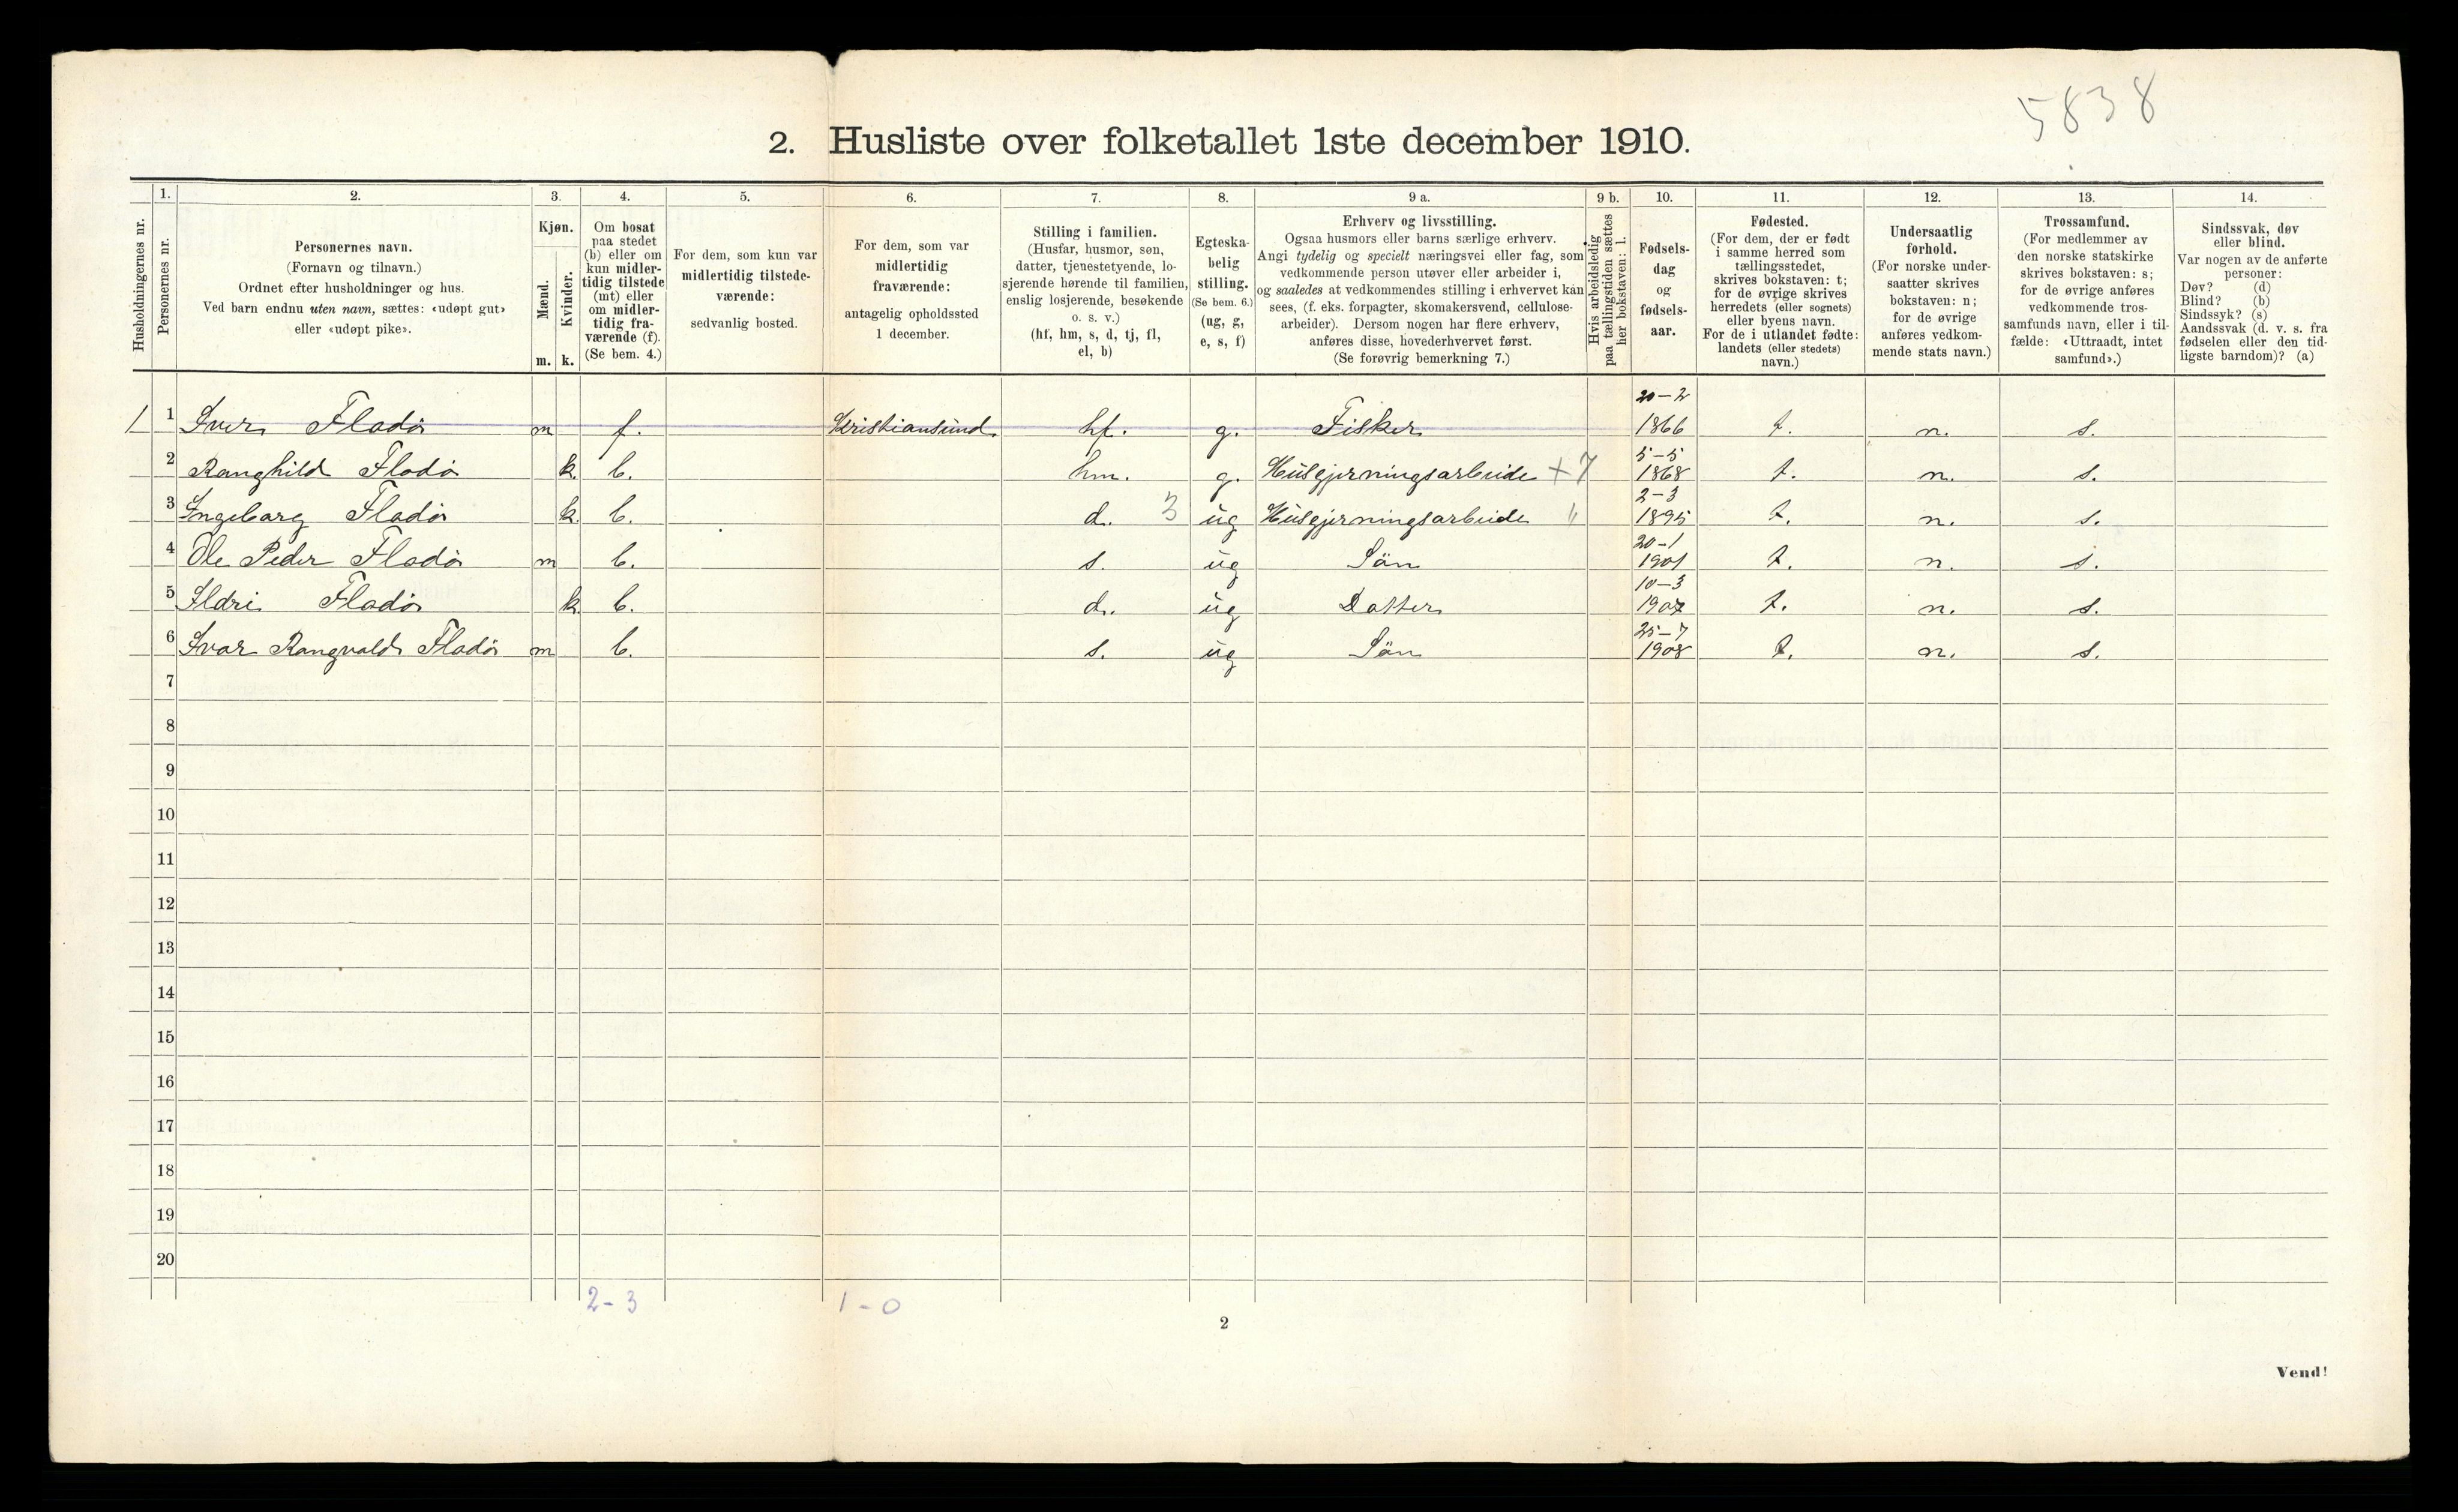 5838
2. Husliste over folketallet 1ste december 1910.
Husholdningernes nr.
1.
Personernes nr.
2.
Personernes navn.
(Fornavn og tilnavn.)
Ordnet efter husholdninger og hus.
Ved barn endnu uten navn, sættes: «udøpt gut»
eller «udøpt pike».
3.
Kjøn.
Mænd.
Kvinder.
m. k.
4.
Om bosat
paa stedet
(b) eller om
kun midler-
tidig tilstede
(mt) eller
om midler-
tidig fra-
værende (f).
(Se bem. 4.)
5.
For dem, som kun var
midlertidig tilstede-
værende:
sedvanlig bosted.
6.
For dem, som var
midlertidig
fraværende:
antagelig opholdssted
1 december.
7.
Stilling i familien.
(Husfar, husmor, søn,
datter, tjenestetyende, lo-
sjerende hørende til familien,
enslig losjerende, besøkende
o. s. v.)
(hf, hm, s, d, tj, fl,
el, b)
8.
Egteska-
belig
stilling.
(Se bem. 6.)
(ug, g,
e, s, f)
9 a.
Erhverv og livsstilling.
Ogsaa husmors eller barns særlige erhverv.
Angi tydelig og specielt næringsvei eller fag, som
vedkommende person utøver eller arbeider i,
og saaledes at vedkommendes stilling i erhvervet kan
sees, (f. eks. forpagter, skomakersvend, cellulose-
arbeider). Dersom nogen har flere erhverv,
anføres disse, hovederhvervet først.
(Se forøvrig bemerkning 7.)
9 b.
Hvis arbeidsledig
paa tællingstiden sættes
her bokstaven: l.
10.
Fødsels-
dag
og
fødsels-
aar.
11.
Fødested.
(For dem, der er født
i samme herred som
tællingsstedet,
skrives bokstaven: t;
for de øvrige skrives
herredets (eller sognets)
eller byens navn.
For de i utlandet fødte:
landets (eller stedets)
navn.)
12.
Undersaatlig
forhold.
(For norske under-
saatter skrives
bokstaven: n;
for de øvrige
anføres vedkom-
mende stats navn.)
13.
Trossamfund.
(For medlemmer av
den norske statskirke
skrives bokstaven: s;
for de øvrige anføres
vedkommende tros-
samfunds navn, eller i til-
fælde: «Uttraadt, intet
samfund».)
14.
Sindssvak, døv
eller blind.
Var nogen av de anførte
personer:
Døv? (d)
Blind? (b)
Sindssyk? (s)
Aandssvak (d. v. s. fra
fødselen eller den tid-
ligste barndom)? (a)
20-2
1 1 Iver Fladø m f. Kristiansund hf. g. Fisker 1866 t. n. s.
5-5
2 Ranghild Fladø k. b. hm. g. Husgjerningsarbeide +7 1868 t. n. s.
2-3
3 Ingebarg Fladø k. b. d. 3 ug Husgjerningsarbeide " 1895 t. n. s.
20-1
4 Ole Peder Fladø m b. s. ug Sön 1901 t. n. s.
10-3
5 Ildri Fladø k. b. d. ug Datter 1907 t. n. s.
25-7
6 Ivar Rangvald Fladø m b. s. ug Sön 1908 t. n. s.
7
8
9
10
11
12
13
14
15
16
17
18
19
20
2-3 1-0
2
Vend!